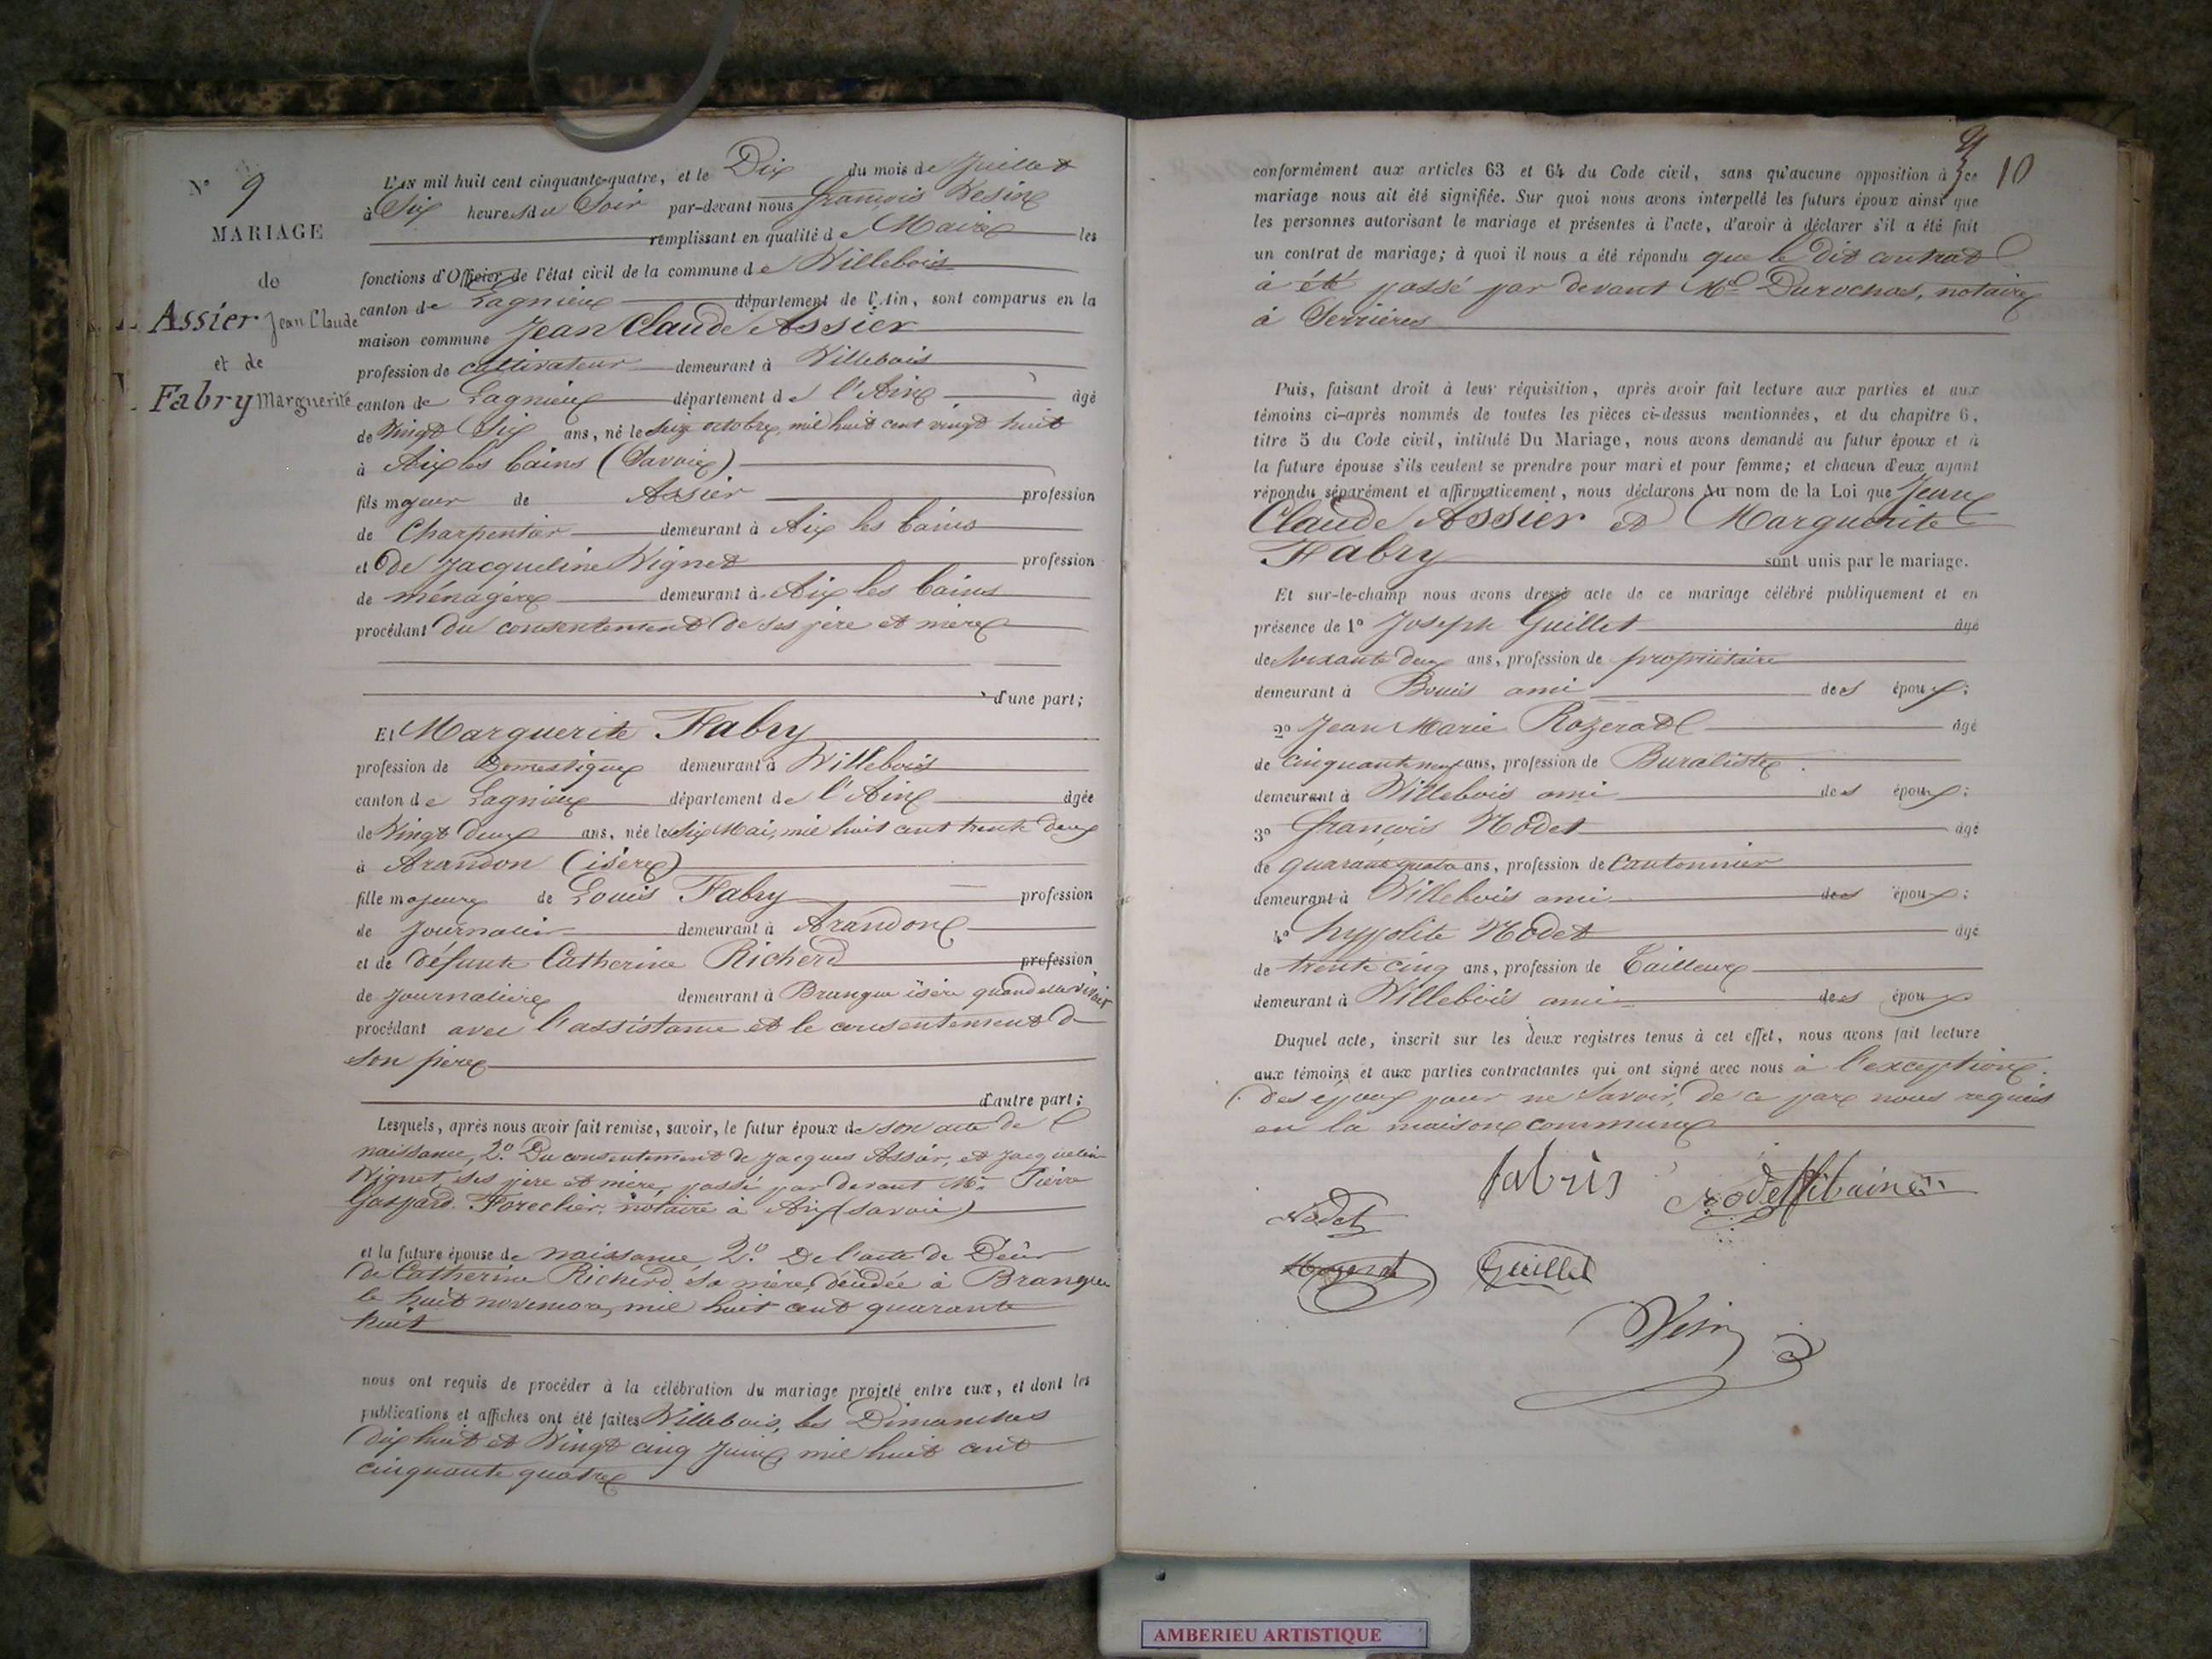 N° 9
MARIAGE
de
Assier Jean Claude
et de
Fabry Marguerite
L'AN mil huit cent cinquante-quatre, et le Dix du mois de Juillet
à Six heures du Soir par-devant nous François Vesin
remplissant en qualité de Maire les
fonctions d'Officier de l'état civil de la commune de Villebois
canton de Lagnieu département de l'Ain, sont comparus en la
maison commune Jean Claude Assier
profession de cultivateur demeurant à Villebois
canton de Lagnieu département de l'Ain âgé
de Vingt Six ans, né le octobre, mil huit cent vingt huit
à Aix les bains (Savoie)
fils majeur de Assier profession
de Charpentier demeurant à Aix les bains
et de Jacqueline Vignet profession
de ménagère demeurant à Aix les bains
procédant du consentement de ses père et mère
d'une part;
Et Marguerite Fabry
profession de Domestique demeurant à Villebois
canton de Lagnieu département de l'Ain âgée
de Vingt deux ans, née le Six Mai, mil huit cent trente deux
à Arandon (isère)
fille majeure de Louis Fabry profession
de Journalier demeurant à Arandon
et de défunte Catherine Richerd profession
de Journalière demeurant à Brangue isère quand elle vivait
procédant avec l'assistance et le consentement de
son père
d'autre part;
Lesquels, après nous avoir fait remise, savoir, le futur époux de son acte de
naissance, 2° Du consentement de Jacques Assier, et Jacqueline
Vignet, ses père et mère, passé par devant Me Pierre
Gaspard Forestier, notaire à Aix (savoie)
et la future épouse de naissance 2° De l'acte de Décès
de Catherine Richerd sa mère, décédée à Brangue
le huit novembre, mil huit cent quarante
huit
nous ont requis de procéder à la célébration du mariage projeté entre eux, et dont les
publications et affiches ont été faites Villebois, les Dimanches
dix huit et Vingt cinq Juin, mil huit cent
cinquante quatre
9
10
conformément aux articles 63 et 64 du Code civil, sans qu'aucune opposition à ce
mariage nous ait été signifiée. Sur quoi nous avons interpellé les futurs époux ainsi que
les personnes autorisant le mariage et présentes à l'acte, d'avoir à déclarer s'il a été fait
un contrat de mariage; à quoi il nous a été répondu que le dit contrat
à été passé par devant Me Durochas, notaire
à Serrières
Puis, faisant droit à leur réquisition, après avoir fait lecture aux parties et aux
témoins ci-après nommés de toutes les pièces ci-dessus mentionnées, et du chapitre 6,
titre 5 du Code civil, intitulé Du Mariage, nous avons demandé au futur époux et à
la future épouse s'ils veulent se prendre pour mari et pour femme; et chacun d'eux ayant
répondu séparément et affirmativement, nous déclarons Au nom de la Loi que Jean
Claude Assier et Marguerite
Fabry sont unis par le mariage.
Et sur-le-champ nous avons dressé acte de ce mariage célébré publiquement et en
présence de 1° Joseph Guillet âgé
de soixante deux ans, profession de propriétaire
demeurant à Bouis ami des époux;
2° Jean Marie Rozerad âgé
de cinquante neuf ans, profession de Buraliste
demeurant à Villebois ami des époux;
3° François Nodet âgé
de quarante quatre ans, profession de Cantonnier
demeurant à Villebois ami des époux;
4° hyppolite Nodet âgé
de trente cinq ans, profession de Tailleur
demeurant à Villebois ami des époux
Duquel acte, inscrit sur les deux registres tenus à cet effet, nous avons fait lecture
aux témoins et aux parties contractantes qui ont signé avec nous à l'exception
des époux pour ne Savoir, de ce par nous requis
en la maison commune
fabris
Nodet
Guillet
Vesin
AMBERIEU ARTISTIQUE